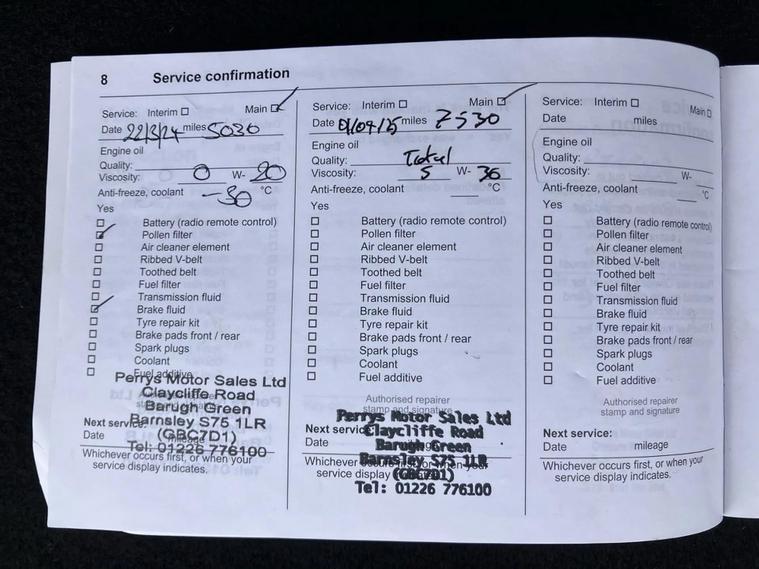 8 Service confirmation
Service: Interim ☐ Main ☑
Date 22/3/24 miles 5030
Engine oil
Quality:
Viscosity: 0 W- 20
Anti-freeze, coolant -30 °C
Yes
☐ Battery (radio remote control)
☑ Pollen filter
☐ Air cleaner element
☐ Ribbed V-belt
☐ Toothed belt
☐ Fuel filter
☐ Transmission fluid
☑ Brake fluid
☐ Tyre repair kit
☐ Brake pads front / rear
☐ Spark plugs
☐ Coolant
☐ Fuel additive
Perrys Motor Sales Ltd
Claycliffe Road
Barugh Green
Barnsley S75 1LR
(GBC7D1)
Tel: 01226 776100
Next service:
Date mileage
Whichever occurs first, or when your
service display indicates.
Service: Interim ☐ Main ☑
Date 01/04/25 miles 7530
Engine oil
Quality: Total
Viscosity: 5 W- 30
Anti-freeze, coolant °C
Yes
☐ Battery (radio remote control)
☐ Pollen filter
☐ Air cleaner element
☐ Ribbed V-belt
☐ Toothed belt
☐ Fuel filter
☐ Transmission fluid
☐ Brake fluid
☐ Tyre repair kit
☐ Brake pads front / rear
☐ Spark plugs
☐ Coolant
☐ Fuel additive
Authorised repairer
stamp and signature
Perrys Motor Sales Ltd
Claycliffe Road
Barugh Green
Barnsley S75 1LR
(GBC7D1)
Tel: 01226 776100
Next service
Date
Whichever occurs first, or when your
service display
Service: Interim ☐ Main ☐
Date miles
Engine oil
Quality:
Viscosity: W-
Anti-freeze, coolant °C
Yes
☐ Battery (radio remote control)
☐ Pollen filter
☐ Air cleaner element
☐ Ribbed V-belt
☐ Toothed belt
☐ Fuel filter
☐ Transmission fluid
☐ Brake fluid
☐ Tyre repair kit
☐ Brake pads front / rear
☐ Spark plugs
☐ Coolant
☐ Fuel additive
Authorised repairer
stamp and signature
Next service:
Date mileage
Whichever occurs first, or when your
service display indicates.